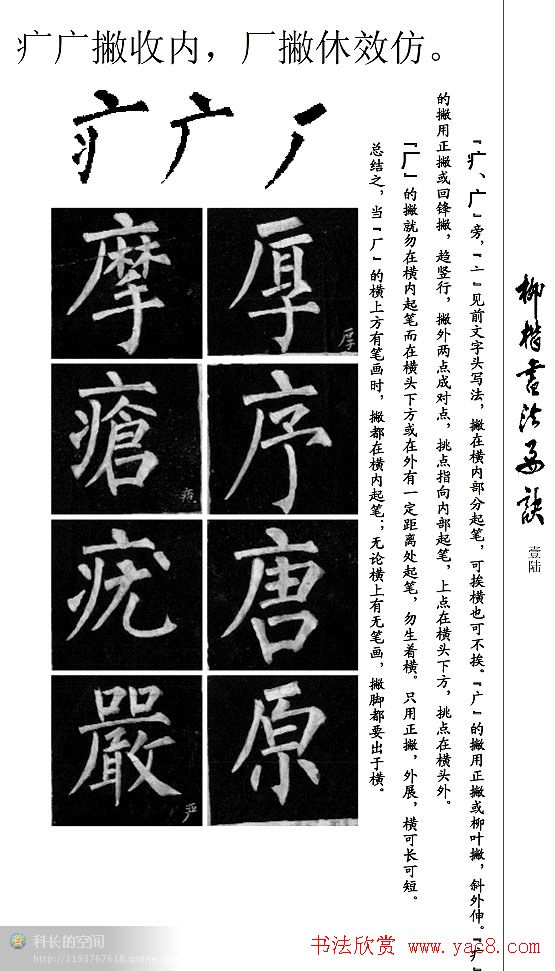 疒广撇收内，厂撇休效仿。
疒广厂
厚摩
序瘡
唐疣
原嚴
厚
疮
严
“疒、广”旁，“亠”见前文字头写法，撇在横内部分起笔，可挨横也可不挨。“广”的撇用正撇或柳叶撇，斜外伸。“疒”
的撇用正撇或回锋撇，趋竖行，撇外两点成对点，挑点指向内部起笔，上点在横头下方，挑点在横头外。
“厂”的撇就勿在横内起笔而在横头下方或在外有一定距离处起笔，勿生着横。只用正撇，外展，横可长可短。
总结之，当“厂”的横上方有笔画时，撇都在横内起笔；无论横上有无笔画，撇脚都要出于横。
柳楷书法要诀
壹陆
科长的空间
http://1193767618.qzone.qq.
书法欣赏 www.yac8.com